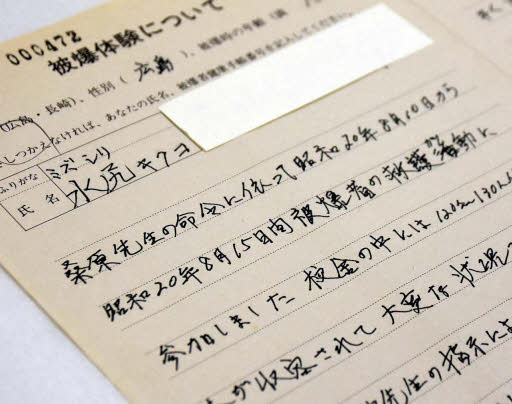 000472
被爆体験について
(広島・長崎)、性別(広島)、被爆時の年齢(満
しつかえなければ、あなたの氏名、被爆者健康手帳番号を記入してください。
ふりがな ミズ シリ
氏名 水尻 キクコ
桑原先生の命令に依って昭和20年8月10日から
昭和20年8月15日間被爆者の救護活動に
参加しました 校舎の中には120人〜130人
が収容されて大変な状況
先生の指示によ